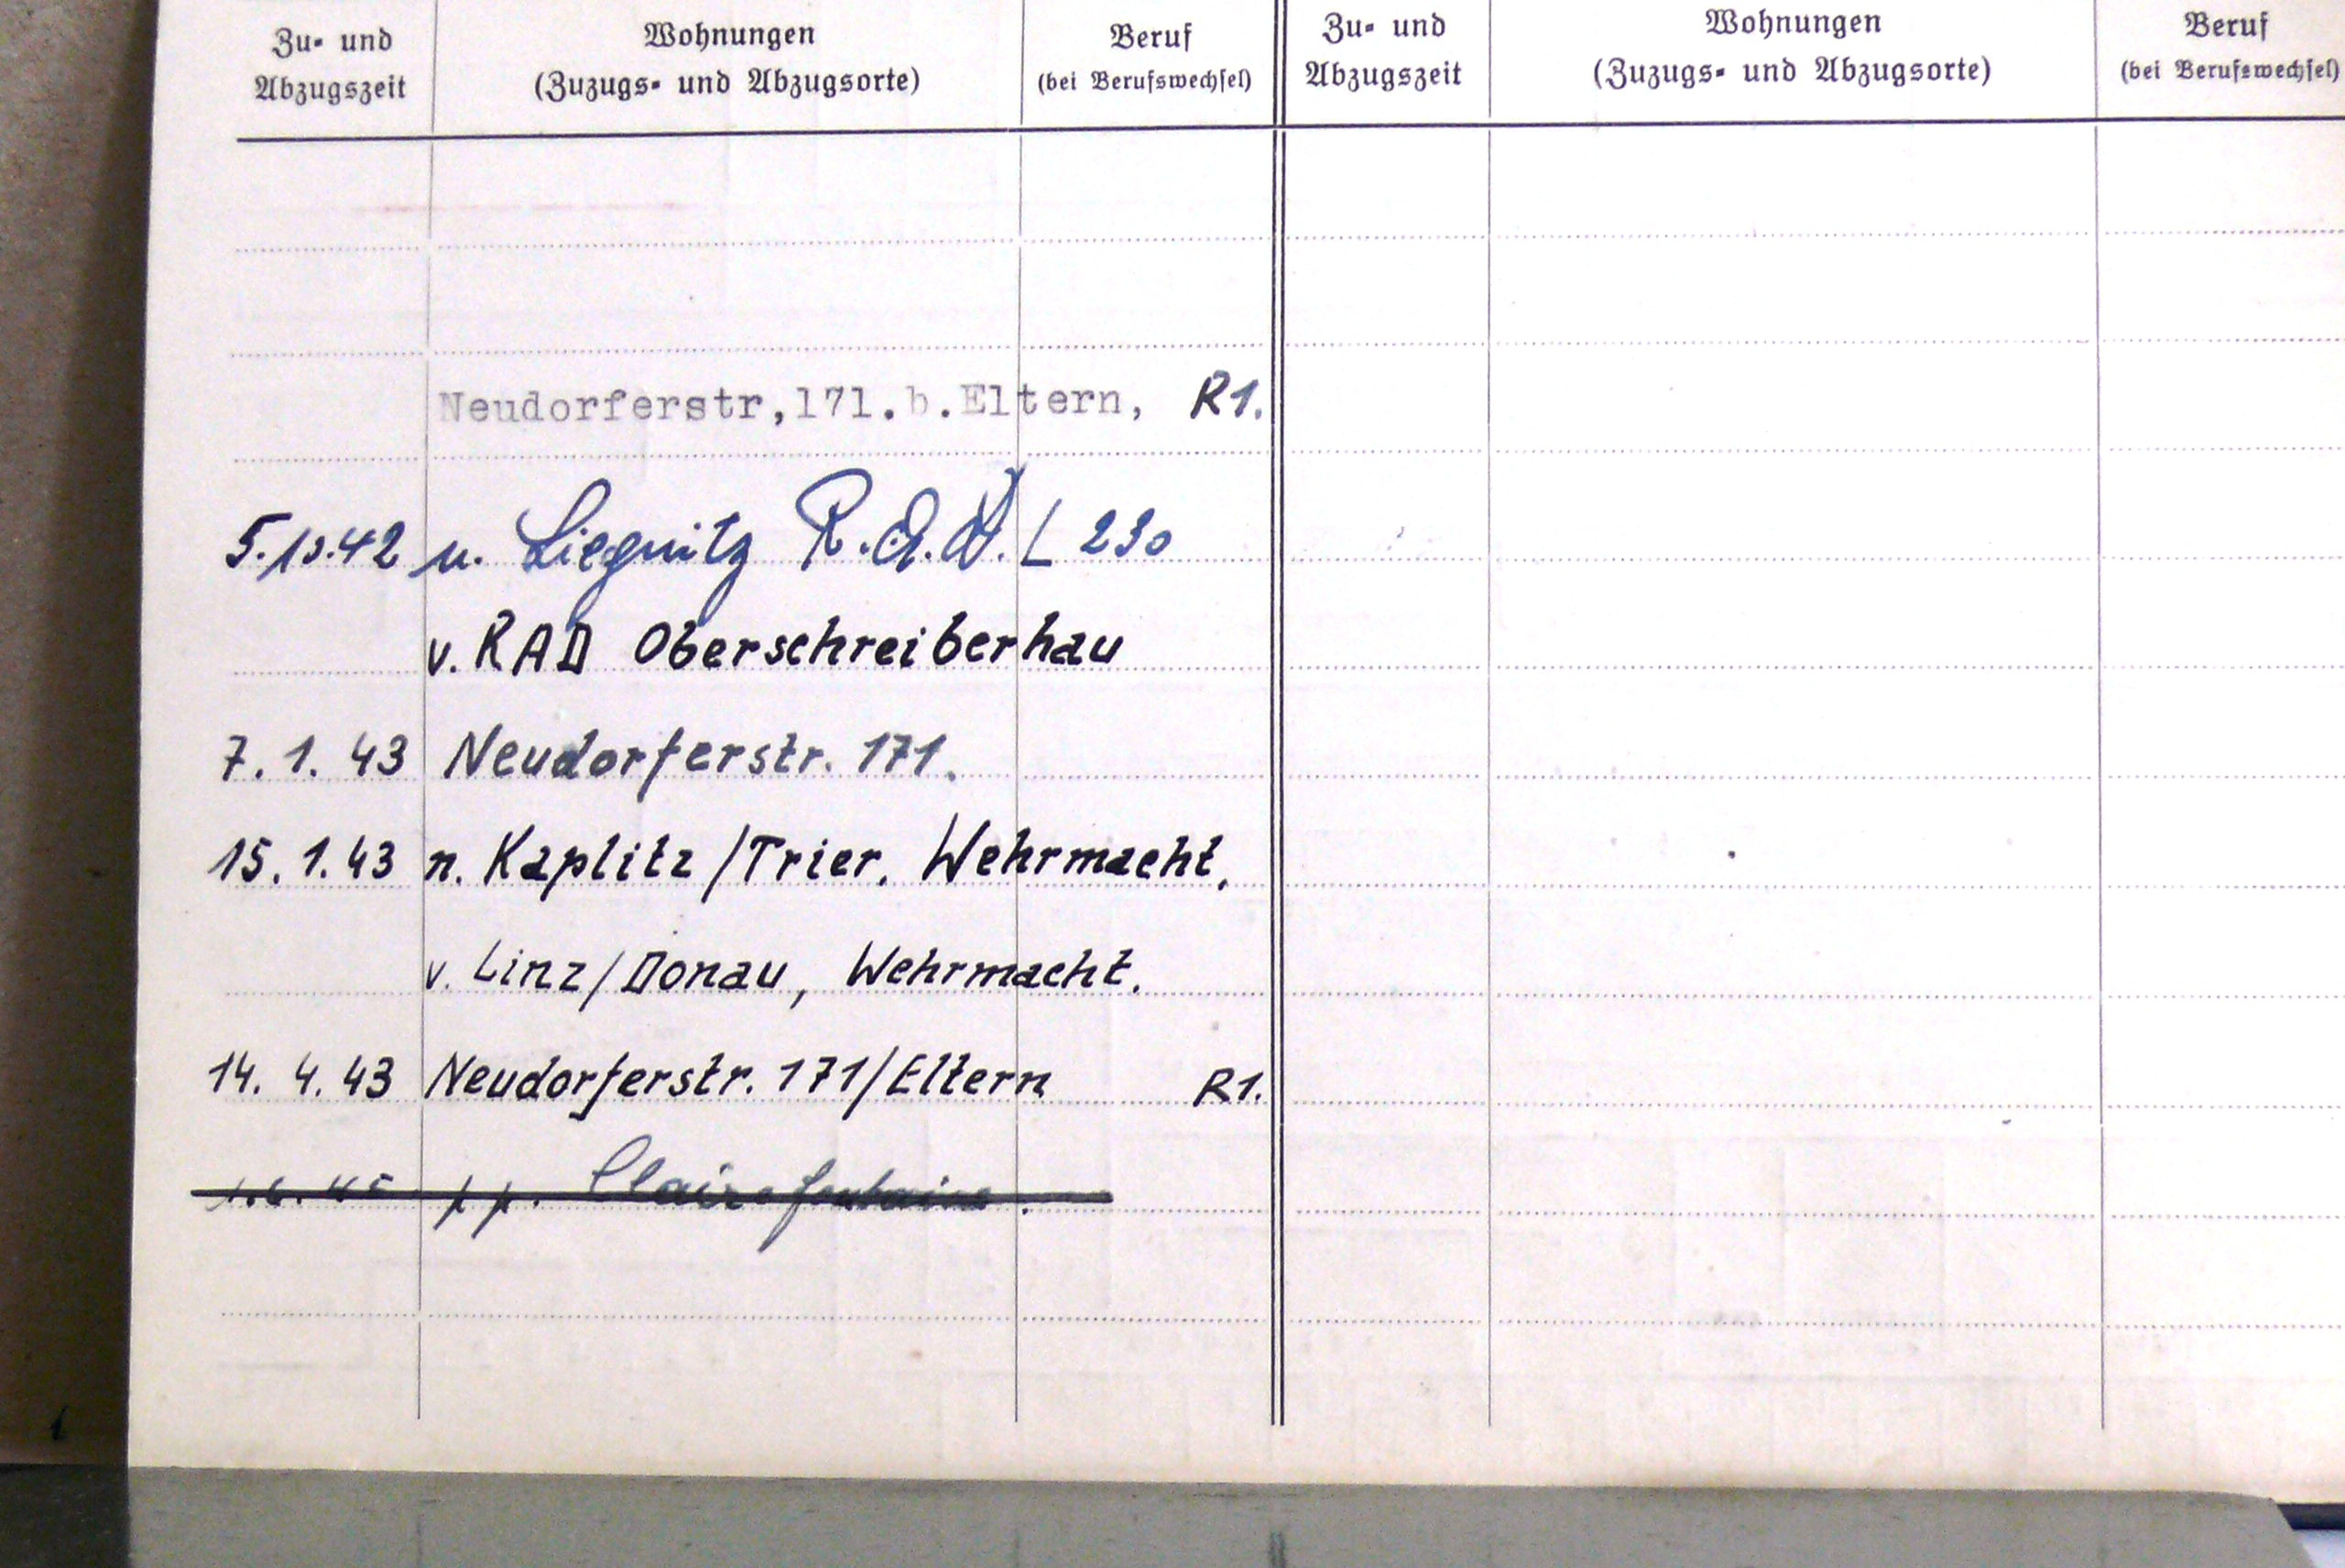 Zu- und Abzugszeit
Wohnungen (Zuzugs- und Abzugsorte)
Beruf (bei Berufswechsel)
Zu- und Abzugszeit
Wohnungen (Zuzugs- und Abzugsorte)
Beruf (bei Berufswechsel)
Neudorferstr,171.b.Eltern, R1.
5.10.42 n. Liegnitz R.A.D. L 230
v. RAD Oberschreiberhau
7. 1. 43 Neudorferstr. 171.
15. 1. 43 n. Kaplitz/Trier. Wehrmacht.
v. Linz/Donau, Wehrmacht.
14. 4. 43 Neudorferstr. 171/Eltern R1.
Clairefontaine.